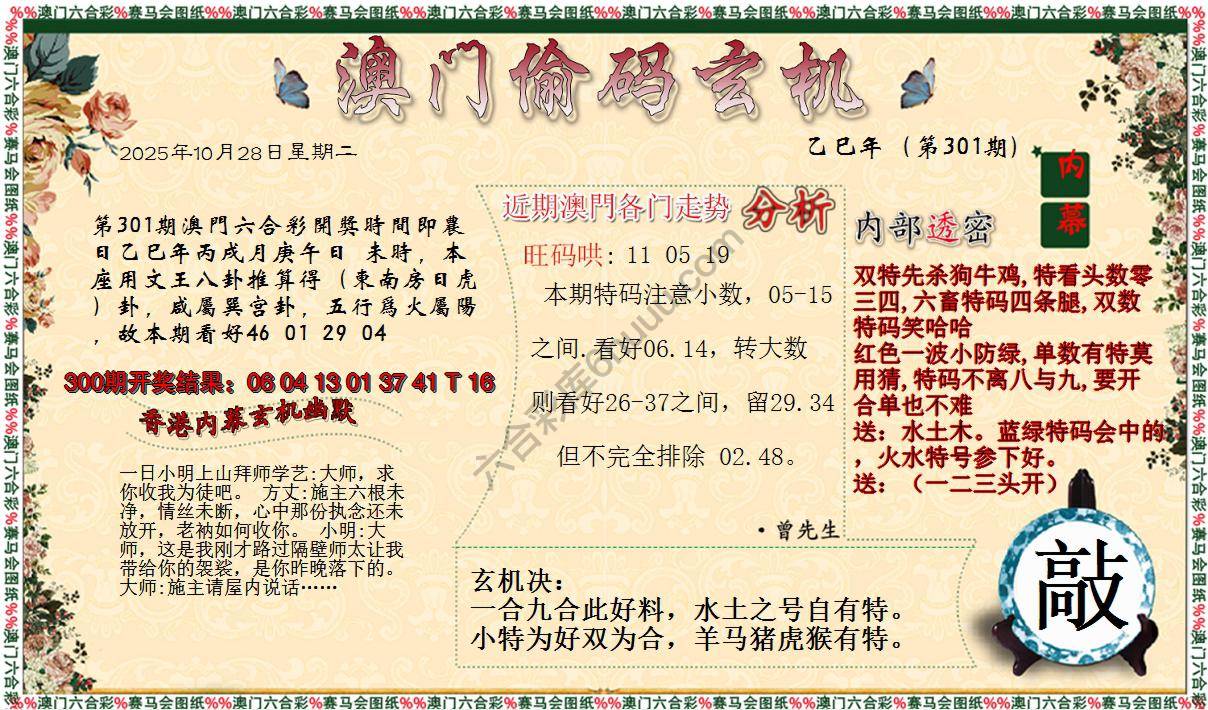 %%澳门六合彩%赛马会图纸%%澳门六合彩%赛马会图纸%%澳门六合彩%赛马会图纸%%澳门六合彩%赛马会图纸%%澳门六合彩%赛马会图纸%%澳门六合彩%赛马会图纸%%
澳门偷码玄机
2025年10月28日星期二
乙巳年（第301期）
第301期澳門六合彩開獎時間即農
日乙巳年丙戌月庚午日 未時，本
座用文王八卦推算得（東南房日虎
）卦，咸屬巽宫卦，五行爲火屬陽
，故本期看好46 01 29 04
300期开奖结果：06 04 13 01 37 41 T 16
香港内幕玄机幽默
一日小明上山拜师学艺:大师，求
你收我为徒吧。 方丈:施主六根未
净，情丝未断，心中那份执念还未
放开，老衲如何收你。 小明:大
师，这是我刚才路过隔壁师太让我
带给你的袈裟，是你昨晚落下的。
大师:施主请屋内说话……
近期澳門各门走势 分析
旺码哄: 11 05 19
本期特码注意小数，05-15
之间.看好06.14，转大数
则看好26-37之间，留29.34
但不完全排除 02.48。
·曾先生
玄机决：
一合九合此好料，水土之号自有特。
小特为好双为合，羊马猪虎猴有特。
内部透密
内
幕
双特先杀狗牛鸡,特看头数零
三四,六畜特码四条腿,双数
特码笑哈哈
红色一波小防绿,单数有特莫
用猜,特码不离八与九,要开
合单也不难
送：水土木。蓝绿特码会中的
，火水特号参下好。
送：（一二三头开）
敲
%%澳门六合彩%赛马会图纸%%澳门六合彩%赛马会图纸%%澳门六合彩%赛马会图纸%%澳门六合彩%赛马会图纸%%澳门六合彩%赛马会图纸%%澳门六合彩%赛马会图纸%%